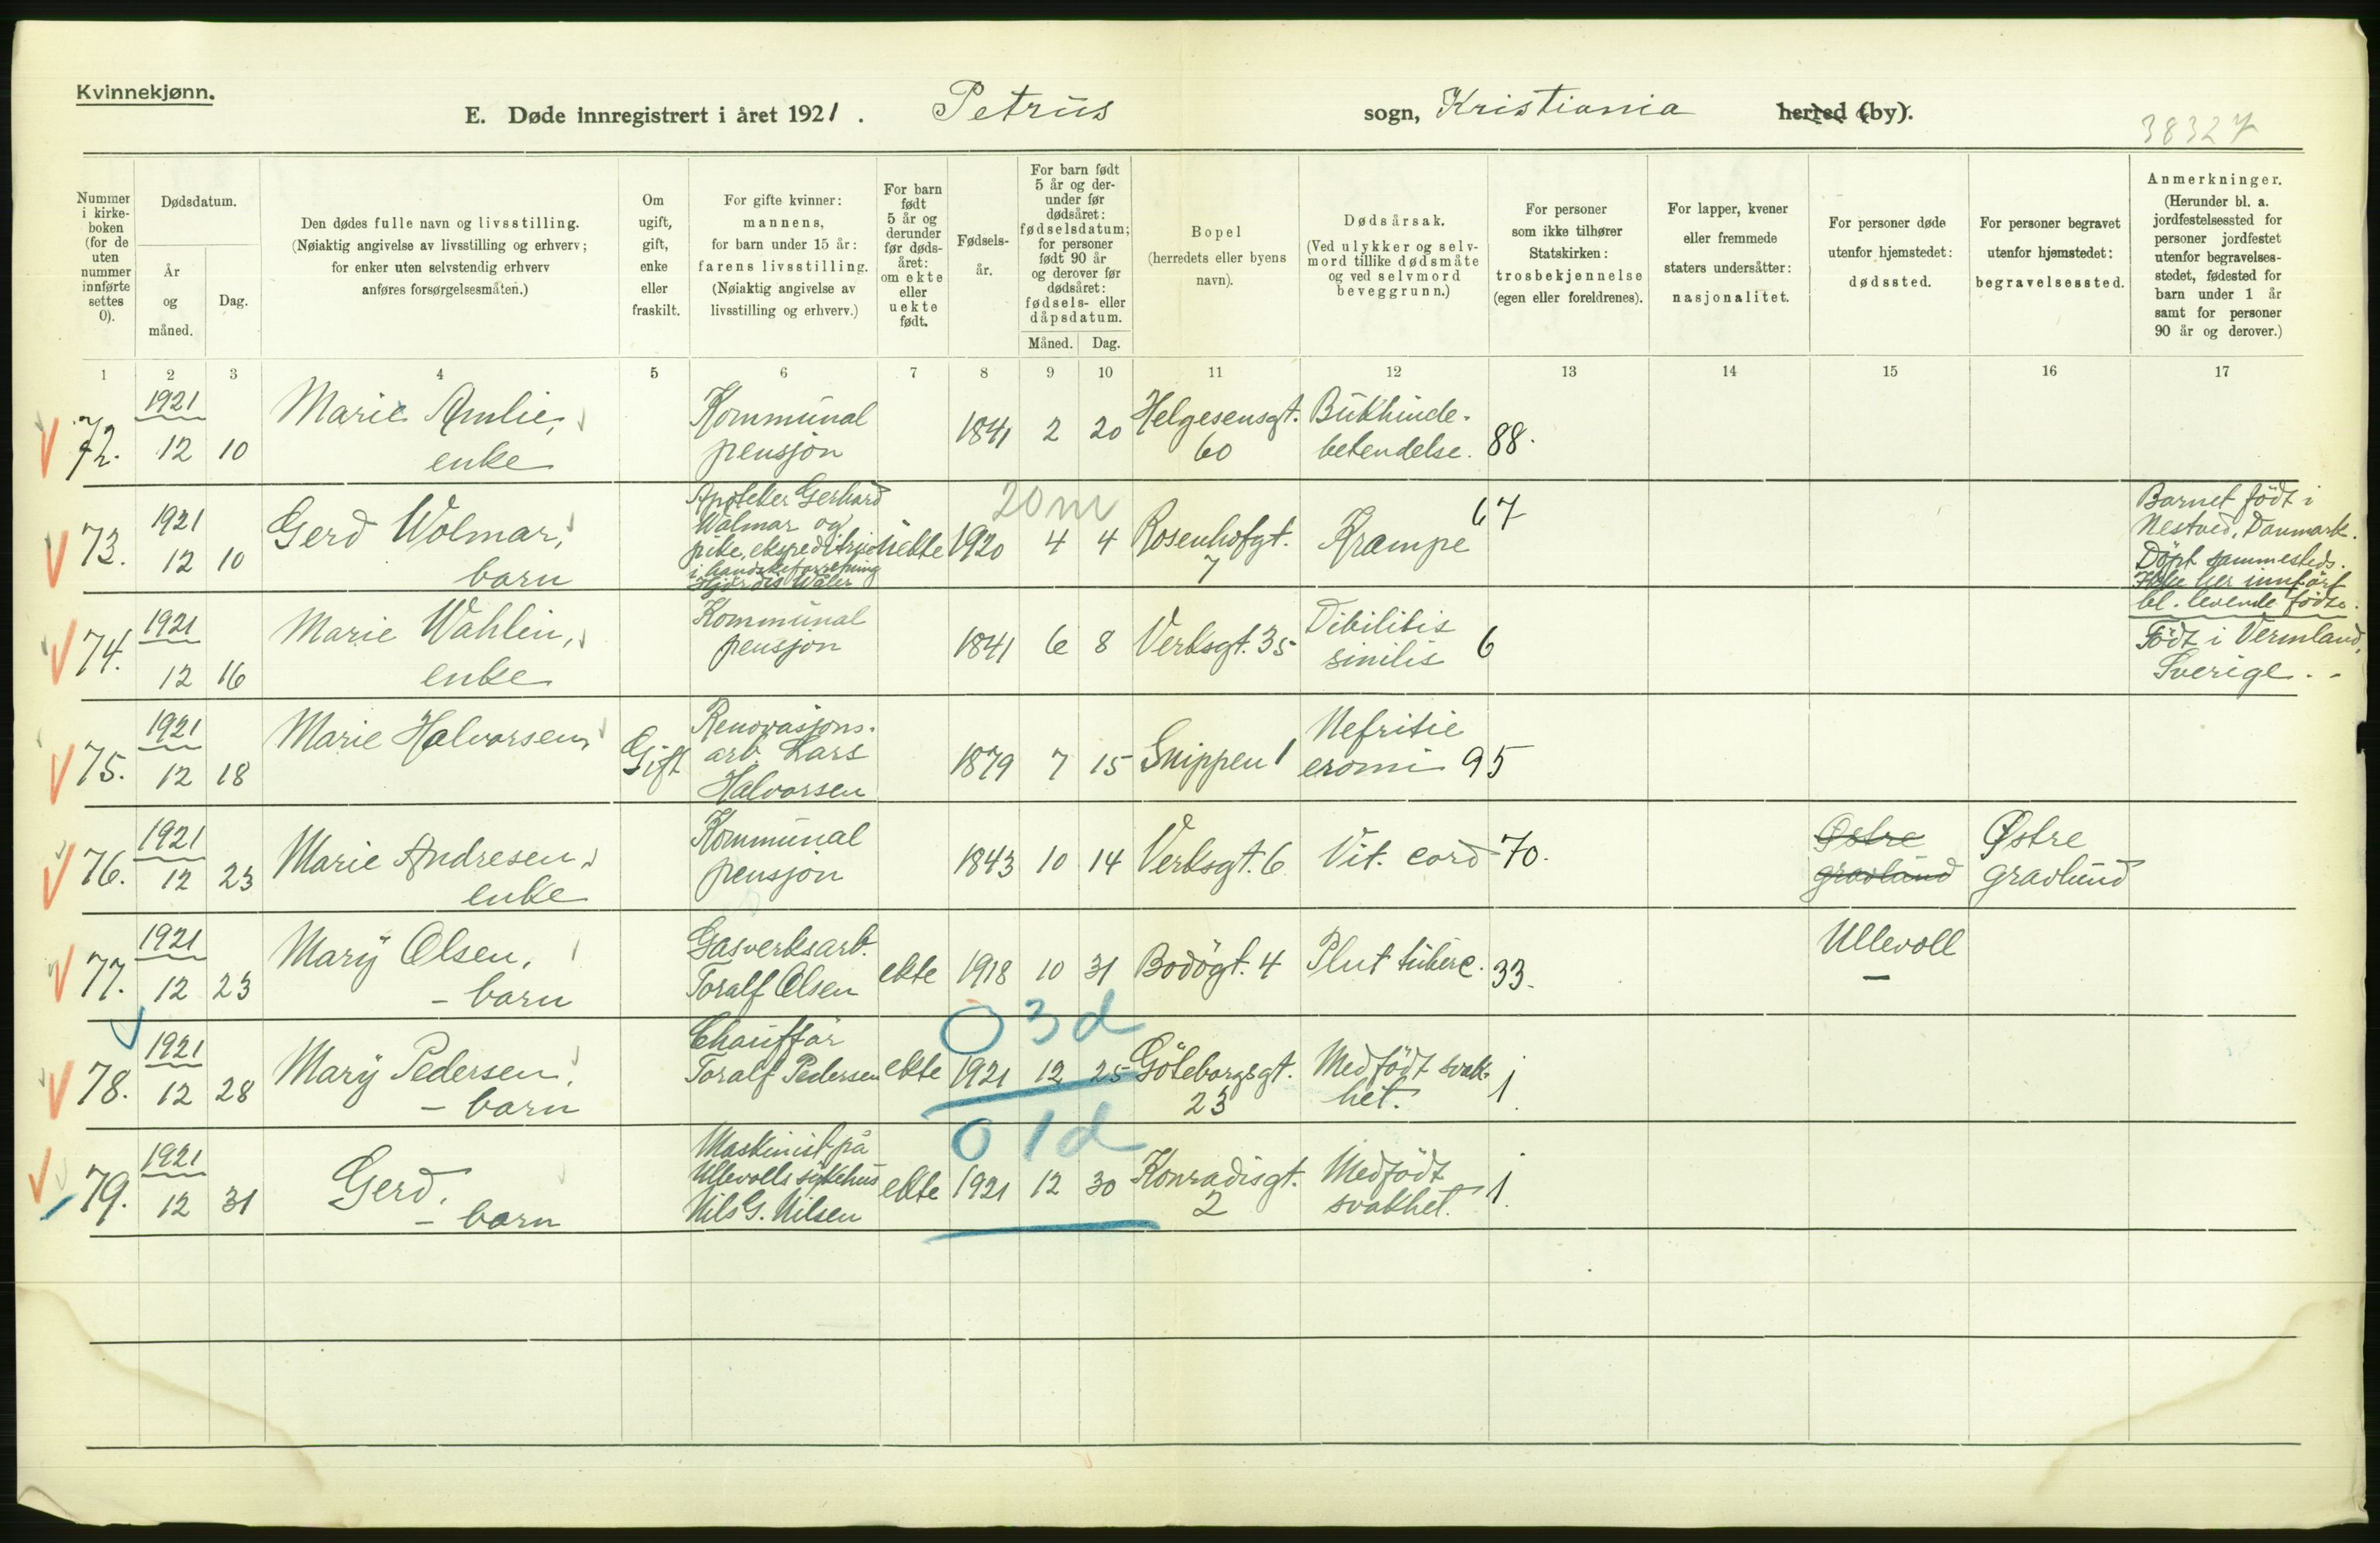 Kvinnekjønn.
E. Døde innregistrert i året 1921. Petrus sogn, Kristiania herred (by).
38327
Nummer i kirke-boken (for de uten nummer innførte settes 0).
Dødsdatum.
År og måned.
Dag.
Den dødes fulle navn og livsstilling.
(Nøiaktig angivelse av livsstilling og erhverv;
for enker uten selvstendig erhverv
anføres forsørgelsesmåten.)
Om
ugift,
gift,
enke
eller
fraskilt.
For gifte kvinner:
mannens,
for barn under 15 år:
farens livsstilling.
(Nøiaktig angivelse av
livsstilling og erhverv.)
For barn
født
5 år og
derunder
før døds-
året:
om ekte
eller
uekte
født.
Fødsels-
år.
For barn født
5 år og der-
under før
dødsåret:
fødselsdatum;
for personer
født 90 år
og derover før
dødsåret:
fødsels- eller
dåpsdatum.
Måned. Dag.
Bopel
(herredets eller byens
navn).
Dødsårsak.
(Ved ulykker og selv-
mord tillike dødsmåte
og ved selvmord
beveggrunn.)
For personer
som ikke tilhører
Statskirken:
trosbekjennelse
(egen eller foreldrenes).
For lapper, kvener
eller fremmede
staters undersåtter:
nasjonalitet.
For personer døde
utenfor hjemstedet:
dødssted.
For personer begravet
utenfor hjemstedet:
begravelsessted.
Anmerkninger.
(Herunder bl. a.
jordfestelsessted for
personer jordfestet
utenfor begravelses-
stedet, fødested for
barn under 1 år
samt for personer
90 år og derover.)
1 2 3 4 5 6 7 8 9 10 11 12 13 14 15 16 17
72. 1921 12 10
Marie Amlie,
enke
Kommunal
pensjon
1841 2 20
Helgesensgt.
60
Bukhinde-
betendelse. 88.
73. 1921 12 10
Gerd Wolmar,
barn
Apoteker Gerhard
Wolmar og
pike, ekspeditrise
i handskeforretning
Hjørdis Wåler
uekte 1920 4 4
20 m
Rosenhofgt.
7
Krampe 67
Barnet födt i
Nestved, Danmark.
Döpt sammesteds.
Ikke her innfört
bl. levende födte.
74. 1921 12 16
Marie Wahlin,
enke
Kommunal
pensjon
1841 6 8
Verksgt. 35
Dibilitis
sinilis 6
Födt i Vermland,
Sverige.
75. 1921 12 18
Marie Halvorsen
Gift
Renovasjons-
arb. Lars
Halvorsen
1879 7 15
Snippen 1
Nefritie
eromi 95
76. 1921 12 23
Marie Andresen,
enke
Kommunal
pensjon
1843 10 14
Verksgt. 6
Vit. cord 70.
Østre
gravlund
Østre
gravlund
77. 1921 12 23
Mary Olsen,
- barn
Gasverksarb.
Toralf Olsen
ekte 1918 10 31
Bodögt. 4
Plut tuberc. 33.
Ullevoll
-
78. 1921 12 28
Mary Pedersen,
- barn
Chauffør
Toralf Pedersen
ekte 1921 12 25
0 3 d
Göteborgsgt.
23
Medfödt svak-
het. 1.
79. 1921 12 31
Gerd,
- barn
Maskinist på
Ullevolls sykehus
Nils G. Nilsen
ekte 1921 12 30
0 1 d
Konradisgt.
2
Medfödt
svakhet. 1.